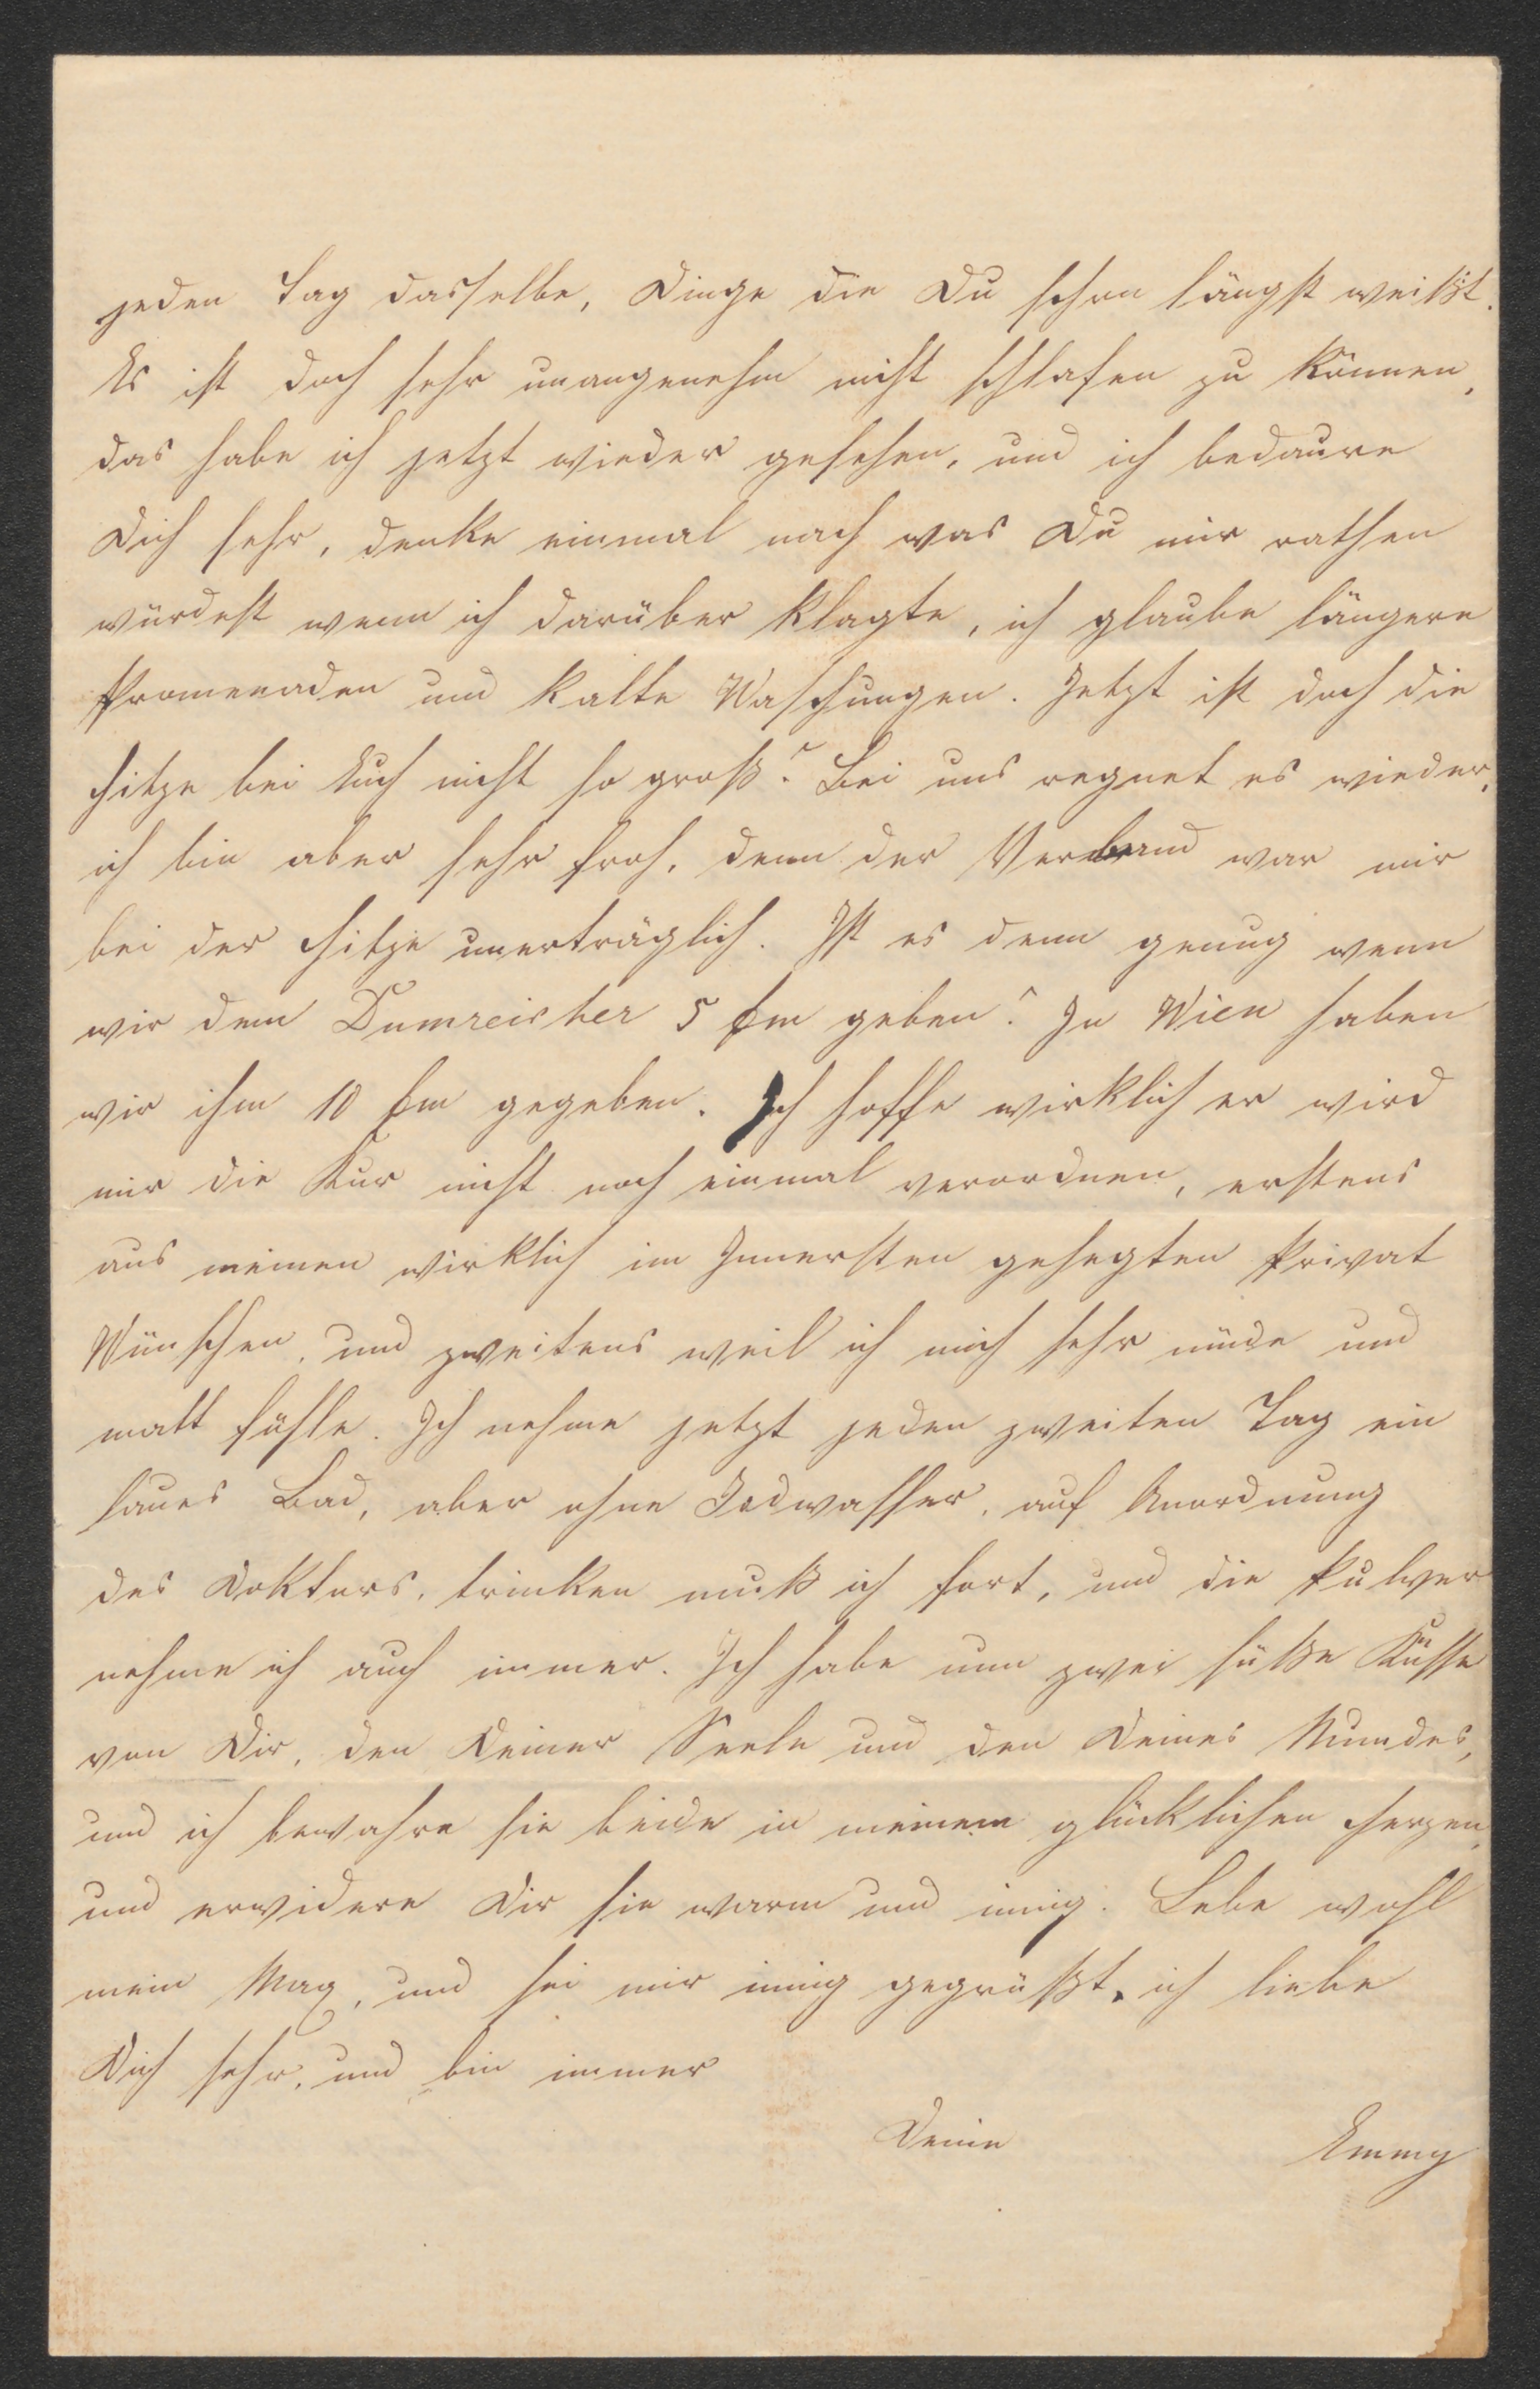 jeden Tag dasselbe, Dinge die Du schon längst weißt.
Es ist doch sehr unangenehm nicht schlafen zu können,
das habe ich jetzt wieder gesehen, und ich bedaure
Dich sehr, denke einmal nach was Du mir rathen
würdest wenn ich darüber klagte, ich glaube längere
Promenaden und kalte Waschungen. Jetzt ist doch die
Hitze bei Euch nicht so groß? Bei uns regnet es wieder,
ich bin aber sehr froh, denn der Verband war mir
bei der Hitze unerträglich. Ist es denn genug wenn
wir dem Dumreicher 5 fm geben? In Wien haben
wir ihm 10 fm gegeben. Ich hoffe wirklich er wird
mir die Kur nicht noch einmal verordnen, erstens
aus meinen wirklich im Innersten gehegten Privat
Wünschen, und zweitens weil ich mich sehr müde und
matt fühle. Ich nehme jetzt jeden zweiten Tag ein
laues Bad, aber ohne Jodwasser, auf Anordnung
des Doktors, trinken muß ich fort, und die Pulver
nehme ich auch immer. Ich habe nun zwei süße Küsse
von Dir, den Deiner Seele und den Deines Mundes,
und ich bewahre sie beide in meinem glücklichen Herzen,
und erwidere Dir sie warm und innig. Lebe wohl
mein Max, und sei mir innig gegrüßt, ich liebe
Dich sehr, und bin immer
Deine Emmy